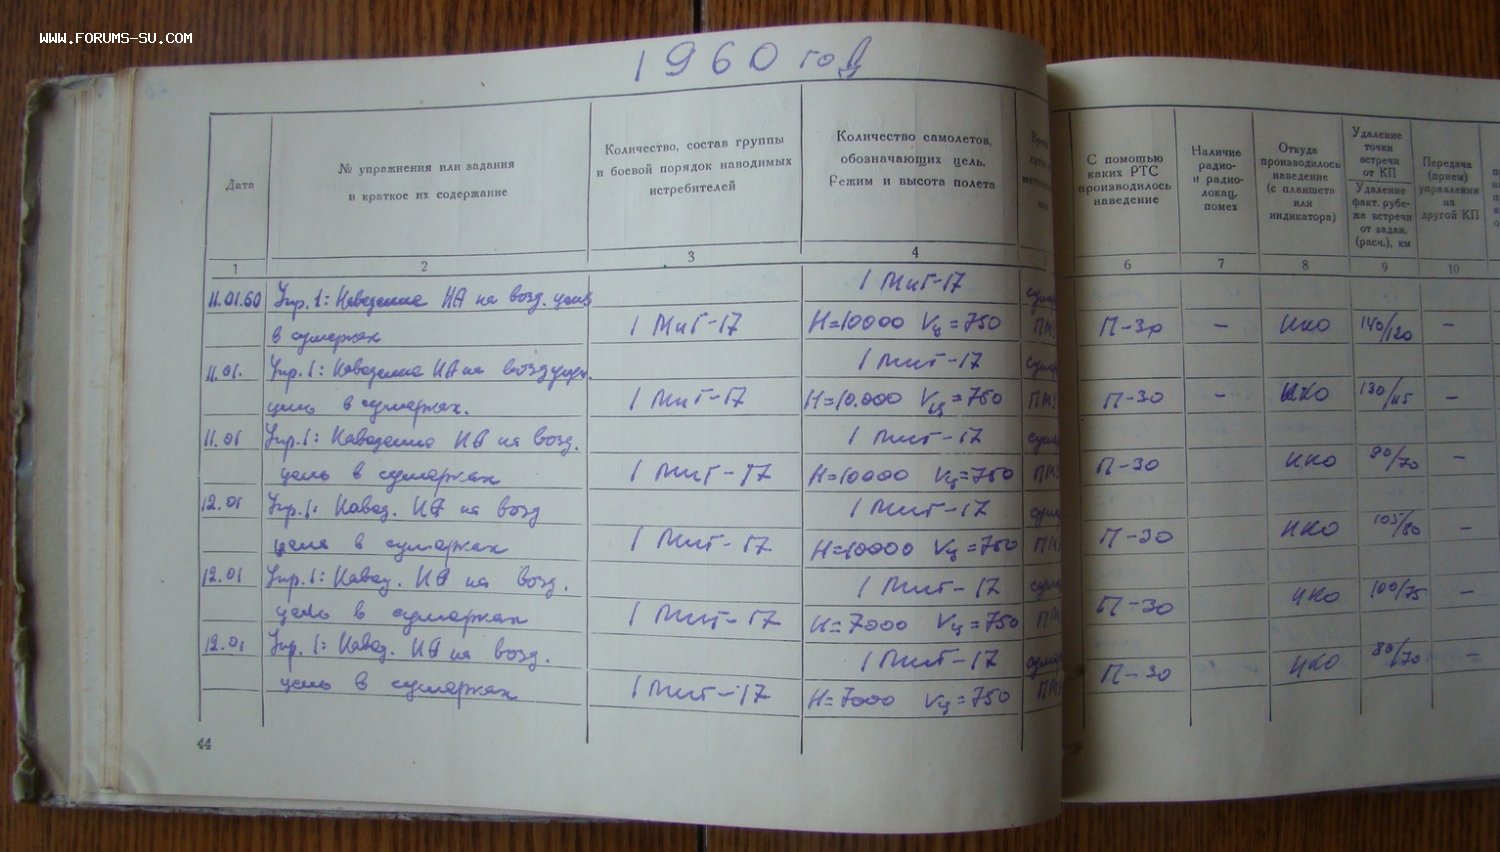 WWW.FORUMS-SU.COM
1960 год
Дата
№ упражнения или задания
и краткое их содержание
Количество, состав группы
и боевой порядок наводимых
истребителей
Количество самолетов,
обозначающих цель.
Режим и высота полета
С помощью
каких РТС
производилось
наведение
Наличие
радио-
и радио-
локац.
помех
Откуда
производилось
наведение
(с планшета
или
индикатора)
Удаление
точки
встречи
от КП
Удаление
факт. рубе-
жа встречи
от задан.
(расч.), км
Передача
(прием)
управления
на
другой КП
1 2 3 4 6 7 8 9 10
11.01.60 Упр. 1: Наведение ИА на возд. цель 1 МиГ-17
в сумерках 1 МиГ-17 H=10000 Vц=750 П-30 – ИКО 140/120 –
11.01. Упр. 1: Наведение ИА на 1 МиГ-17
цель в сумерках. 1 МиГ-17 H=10.000 Vц=750 П-30 – ИКО 130/115 –
11.01 Упр. 1: Наведение ИА на возд. 1 МиГ-17
цель в сумерках 1 МиГ-17 H=10000 Vц=750 П-30 ИКО 90/70 –
12.01 Упр. 1: Навед. ИА на возд 1 МиГ-17
цель в сумерках 1 МиГ-17 H=10000 Vц=750 П-30 ИКО 105/80 –
12.01 Упр. 1: Навед. ИА на возд. 1 МиГ-17
цель в сумерках 1 МиГ-17 H=7000 Vц=750 П-30 ИКО 100/75 –
12.01 Упр. 1: Навед. ИА на возд. 1 МиГ-17
цель в сумерках 1 МиГ-17 H=7000 Vц=750 П-30 ИКО 80/70 –
44